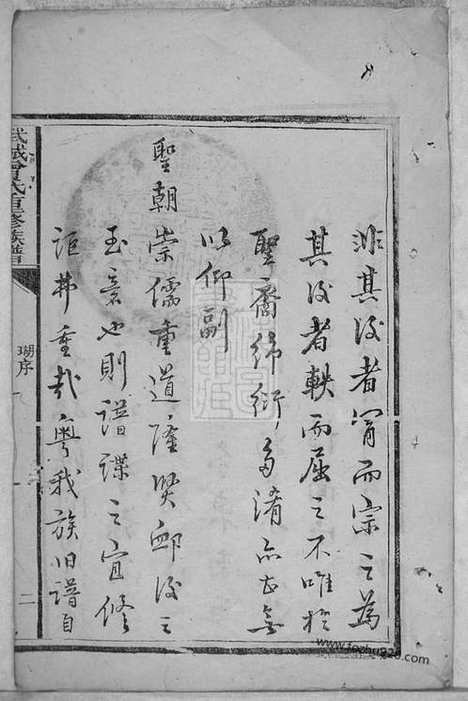 非其後者冒而宗之為
其後者軼而屈之不唯於
聖裔綿衍多淆亦且無
以仰副
聖朝崇儒重道隆賢卹後之
至意也則譜諜之宜修
詎弗重哉粵我族旧譜自
武城曾氏重修族譜
瑚序
二
www.fozhu920.com